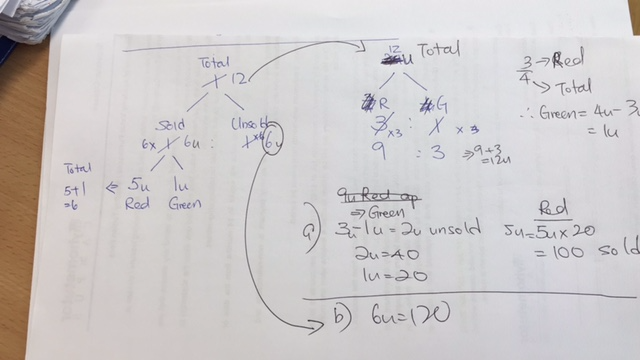 Total
1 12
Sold
Unsold
6x 1 6u : 1 x6 6u
Total
5+1
=6
5u 1u
Red Green
12
u Total
R G
3 x3 : 1 x 3
9 : 3 ⇒ 9+3
=12u
3/4 → Red
→ Total
∴ Green = 4u - 3u
= 1u
9u Red
⇒ Green
a) 3u - 1u = 2u unsold
2u = 40
1u = 20
Red
5u = 5u x 20
= 100 sold
b) 6u = 120